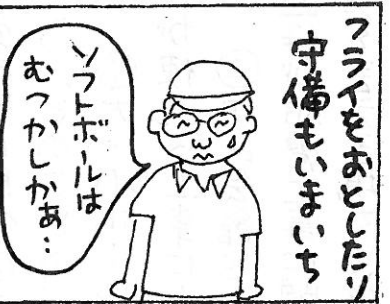 フライをおとしたり
守備もいまいち
ソフトボールは
むつかしかぁ…